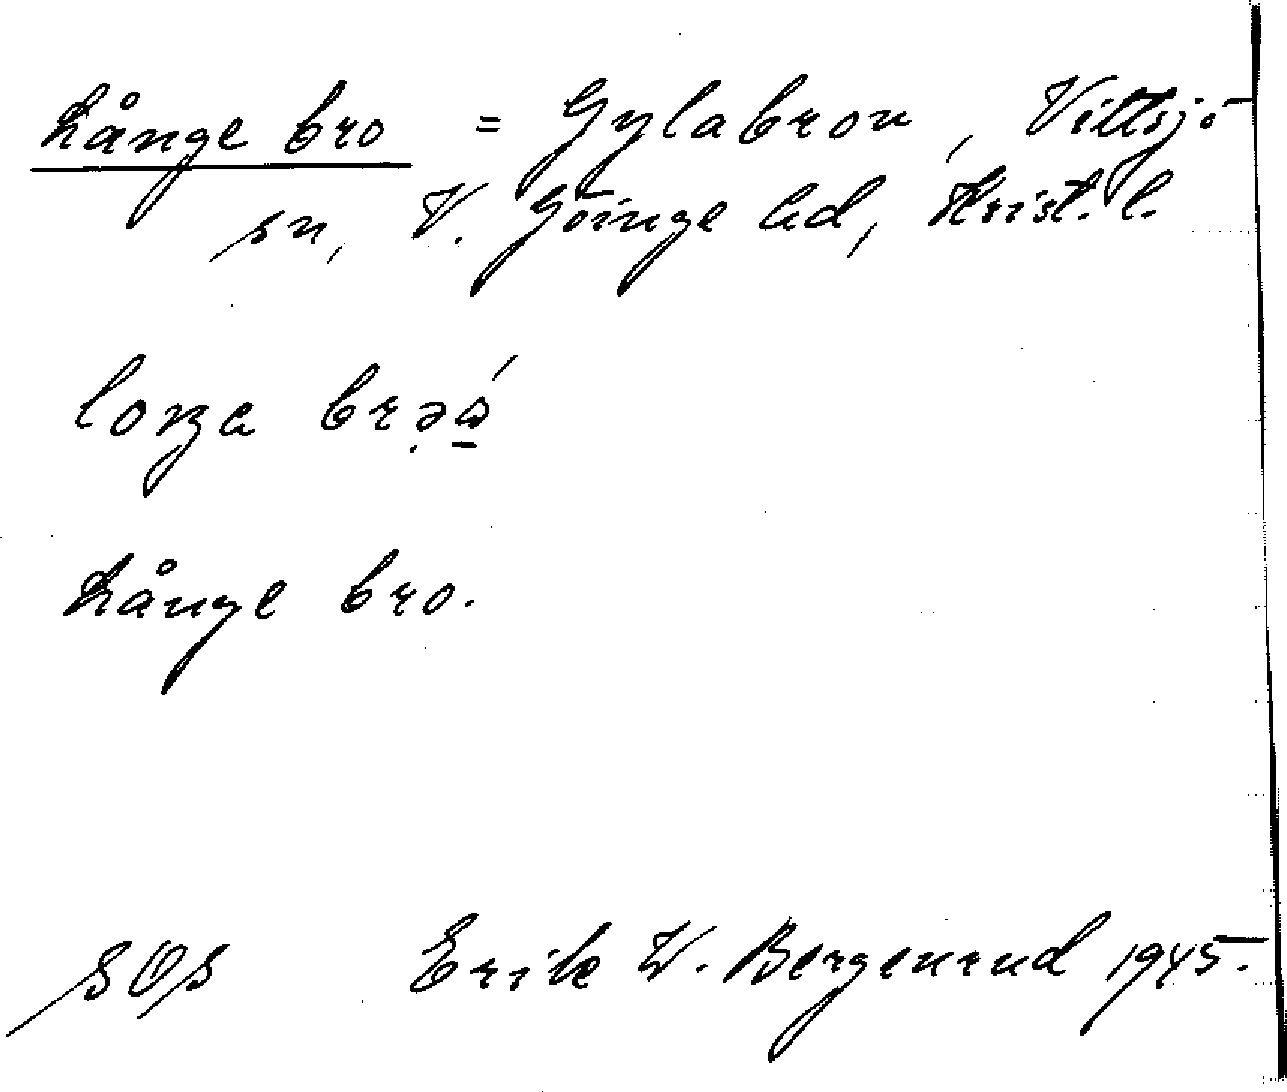 Långe bro = Gylabron, Vittsjö
sn, V. Göinge hd, Krist. l.
loŋa
Långe bro.
SOS Erik W. Bergenrud 1945.